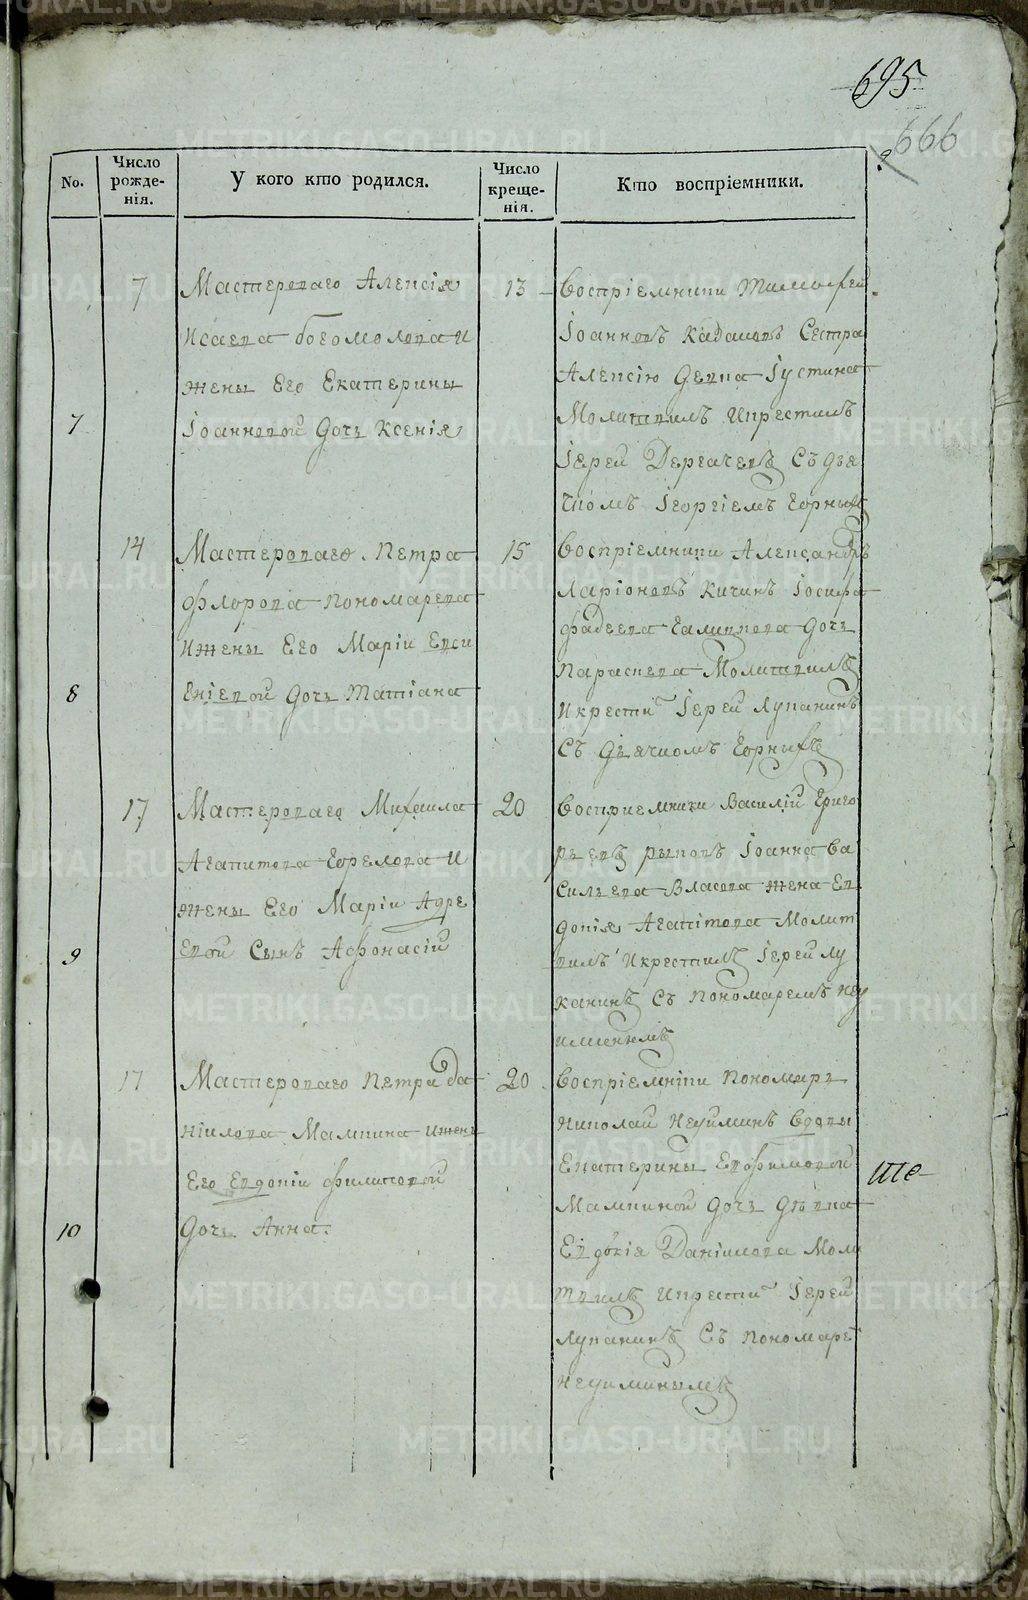 695
666
No.
Число рожденія.
У кого кто родился.
Число крещенія.
Кто воспріемники.
7
7
Мастероваго Алексія
Исаева богомолова и
жены Его Екатерины
Іоанновой Дочь Ксенія
13
Воспріемники Тимофей
Іоанновъ Сестра
Алексію Девка Іустина
Молитвилъ Икрестилъ
Іерей Дергачевъ Съ дья
чкомъ Георгіемъ Горныхъ
8
14
Мастероваго Петра
Флорова Пономарева
Ижены Его Маріи Евси
гніевой Дочь Татіана
15
Воспріемники Александръ
Ларіоновъ Кичинъ Іосифа
Фадеева Дочь
Параскева Молитвилъ
Икрести Іерей Луканинъ
Съ Дьячкомъ Горныхъ
9
17
Мастероваго Михаила
Агапитова Горелова И
жены Его Маріи Андре
евой Сынъ Афонасій
20
Восприемники Василій Григо
рьевъ рыковъ Іоанна Ва
сильева Власова жена Ев
докія Агапітова Молит
вилъ Икрестилъ Іерей Лу
канинъ Съ Пономаремъ Неу
иминымъ
10
17
Мастероваго Петра Да
ніилова Мамкина Ижены
Его Евдокіи Филиповой
Дочь Анна.
20
Воспріемніки Пономарь
Николай Неуиминъ Вдовы
Екатерины Ефимовой
Мамкиной Дочь Девка
Евдокія Даніилова Моли
твилъ Икрести Іерей
Луканинъ Съ Пономаре
Неуиминымъ
METRIKI.GASO-URAL.RU